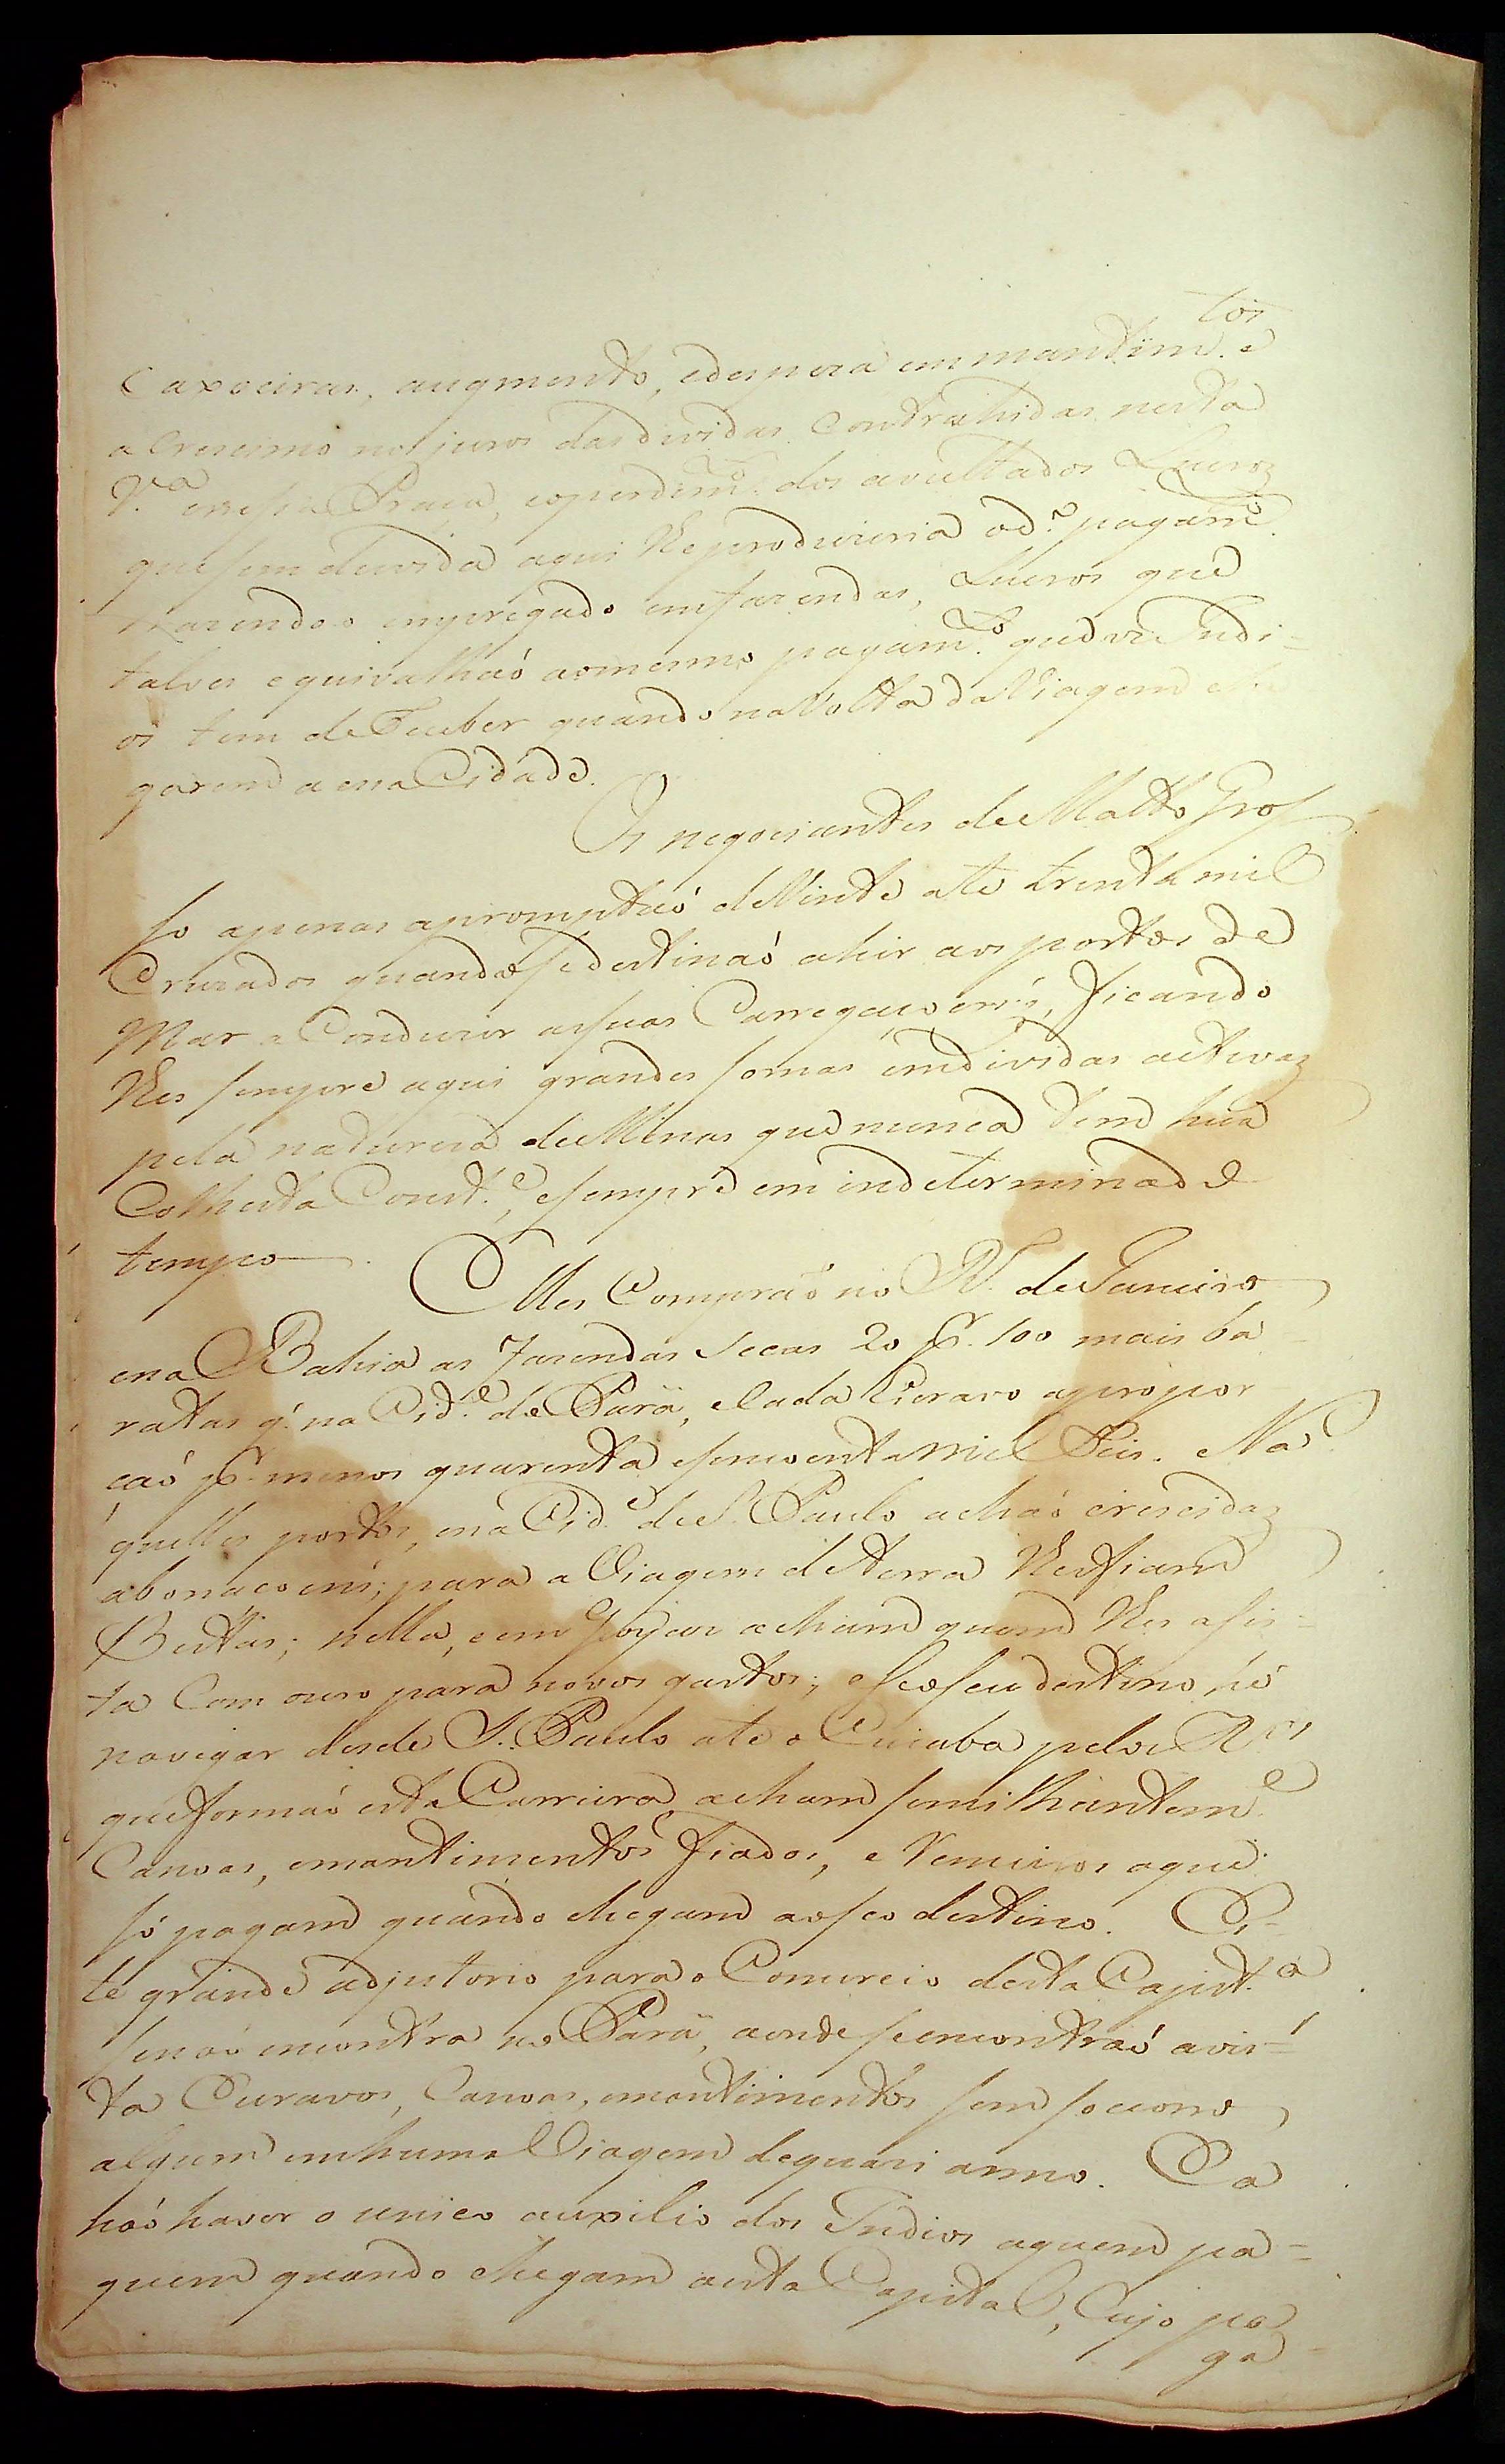 Caxoeiras, augmento, edespeza em mantim.tos e
a Crescimo no juros das dividas Contrahidas nesta
V.a enessa Praça, eoperdim.to dos avultados Lucros
que sem duvida aqui lhe produziria od.o pagam.to
trazendo-o empregado emfazendas, Lucros que
talves equivalhaó aomesmo pagam.to que os Indi=
os tem de Receber quando na Volta da Viagem che
garem a essa Cidade.
Os negociantes de Matto Gros
so apenas apromptaó de Vinte ate trenta mil
Cruzados quando sedestinaó ahir aos portos de
Mar a Conduzir assuas Carregaçoens, ficando
lhes sempre aqui grandes somas emdividas activas
pela natureza de Minas que nunca tem hua
Colheita Const.e, esempre em indeterminado
tempo.
Elles Compraó no R. de Janeiro
ena Bahia as Fazendas Secas 20 p.r 100 mais ba
ratas q' na Cid.e do Pará, eCada Escravo apropor
çaó p.r menos quarenta esincoenta mil Reis. Na
quelles portos, ena Cid.e de S. Paulo achaó crescidas
abonaçoens; para a Viagem de terra lhes fiam
Bestas; nella, e em Goyaz acham quem lhes assis=
ta Com ouro para novos gastos; eseoseu destino hé
navegar desde S. Paulo até o Cuiabá pelos R.os
que formaó esta Carreira acham semilhantem.e
Canoas, emantimentos Fiados, e Remeiros aque
só pagam quando chegam aoseo destino. Es=
te grande adjutorio para o Comercio desta Capit.a
senaó encontra no Pará, aonde seencontraó avis=
ta Escravos, Canoas, emantimentos sem socorro
algum emhuma Viagem dequazi anno. Ea
naó haver o unico auxilio dos Indios aquem pa=
guem quando chegam aesta Capital, Cujo pa
ga